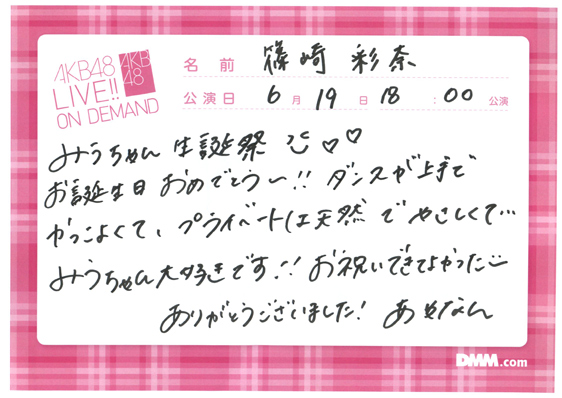 AKB48
LIVE!!
ON DEMAND
AKB
48
名前 篠崎 彩奈
公演日 6月19日18:00公演
みうちゃん 生誕祭 ♡♡
お誕生日 おめでとう〜!! ダンスが上手で
かっこよくて、プライベートは天然 で やさしくて…
みうちゃん大好きです!! お祝いできてよかった
ありがとうございました! あやなん
DMM.com